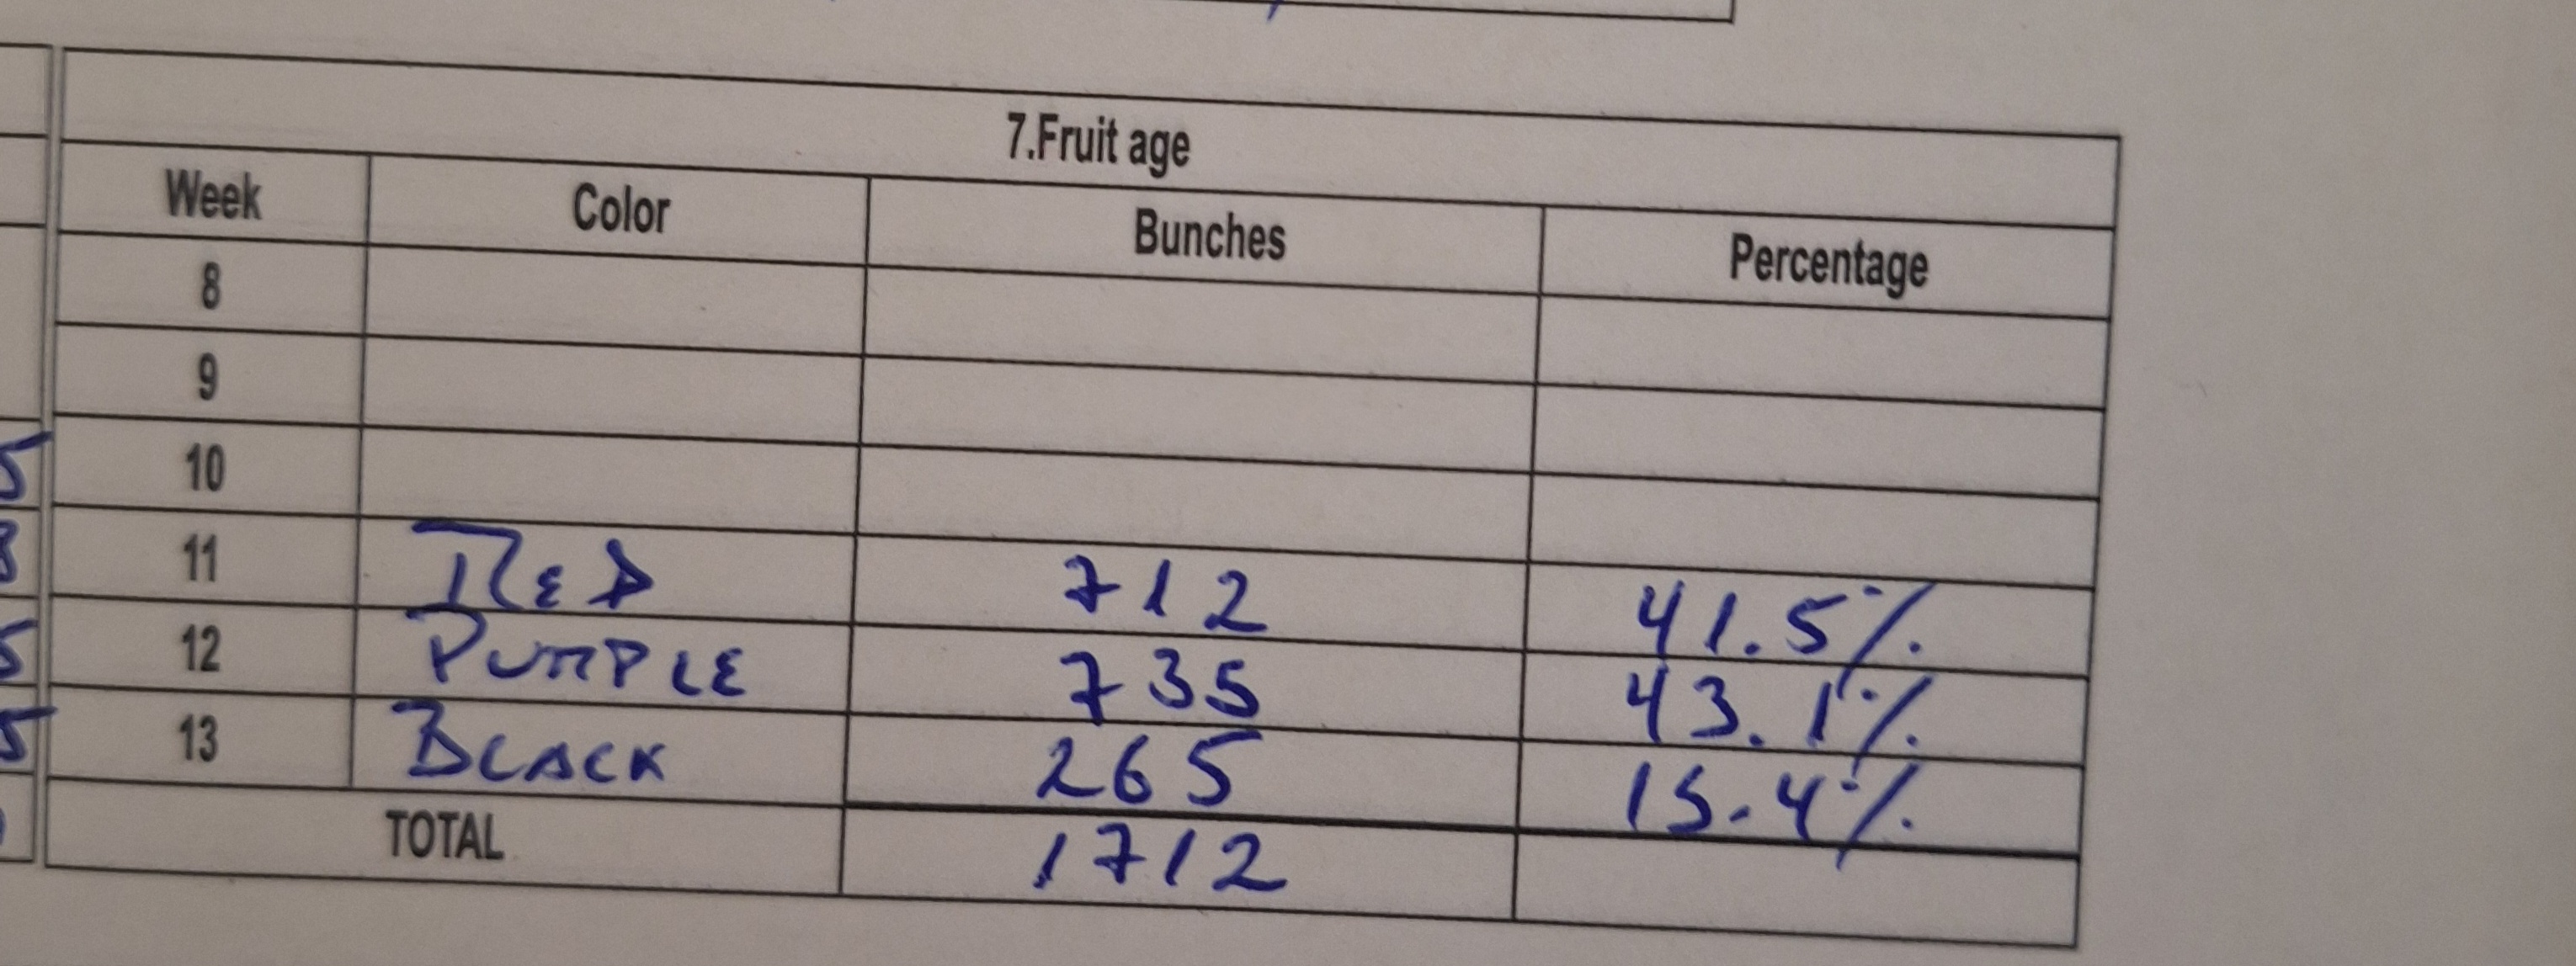 7.Fruit age
Week Color Bunches Percentage
8
9
10
11 RED 712 41.5%
12 PURPLE 735 43.1%
13 BLACK 265 15.4%
TOTAL 1712